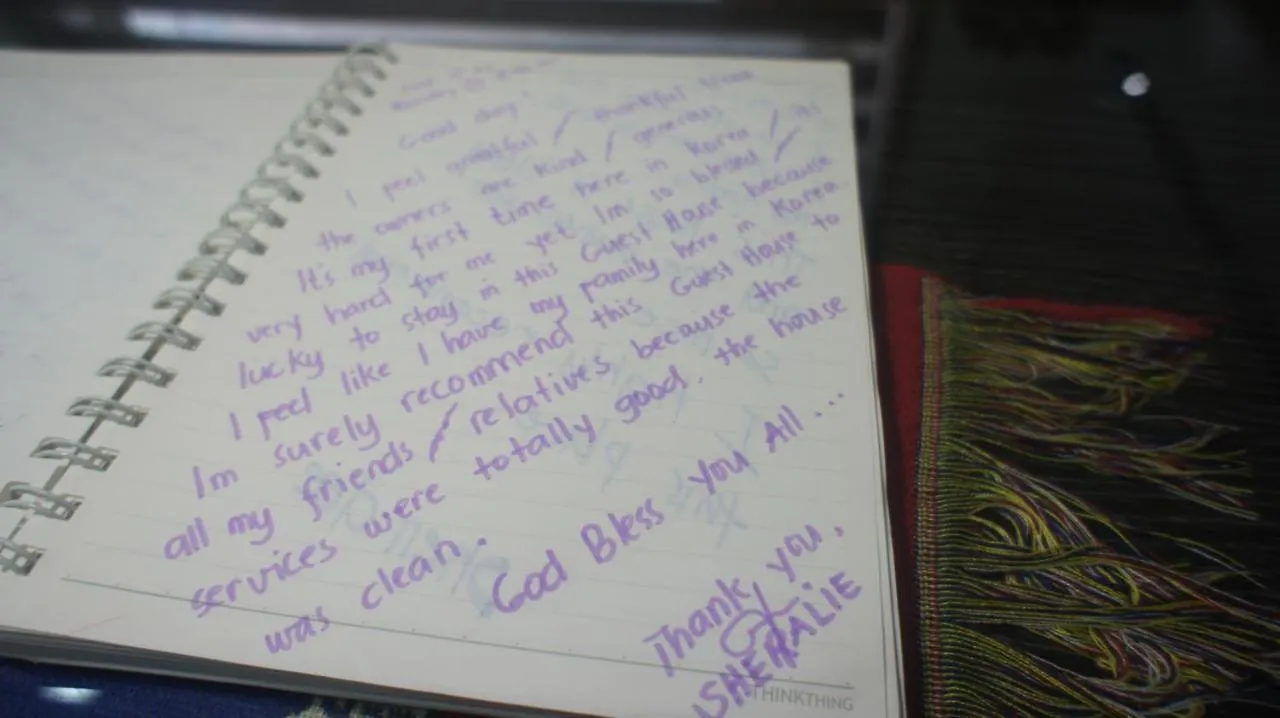 Good day!
I feel grateful / thankful
the owners are kind / generous
It's my first time here in Korea / its
very hard for me yet Im so blessed /
lucky to stay in this Guest House because
I feel like I have my family here in Korea.
Im surely recommend this Guest House to
all my friends / relatives because the
services were totally good. the house
was clean.
God Bless you All ...
Thank you,
SHERALIE
THINKTHING